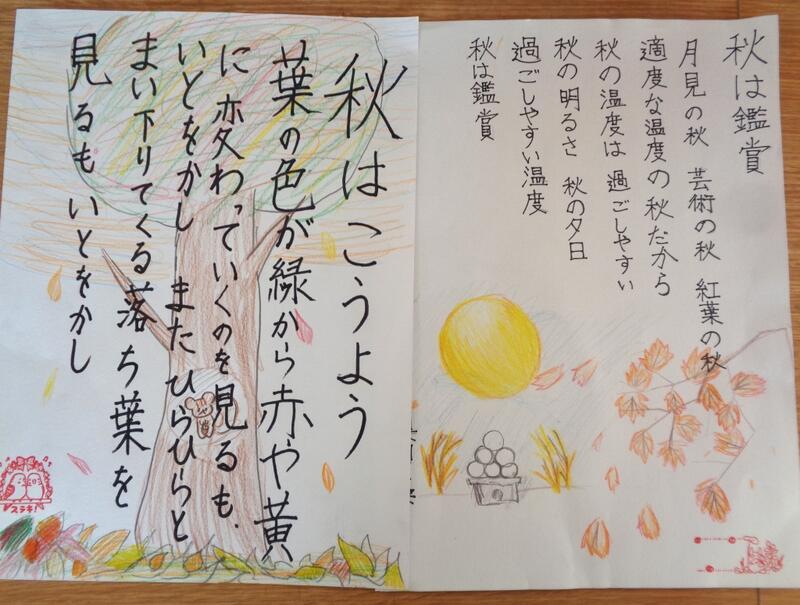 秋は鑑賞
月見の秋　芸術の秋　紅葉の秋
適度な温度の秋だから
秋の温度は　過ごしやすい
秋の明るさ　秋の夕日
過ごしやすい温度
秋は鑑賞
秋はこうよう
葉の色が緑から赤や黄
に変わっていくのを見るも、
いとをかし　またひらひらと
まい下りてくる落ち葉を
見るも　いとをかし
ステキ